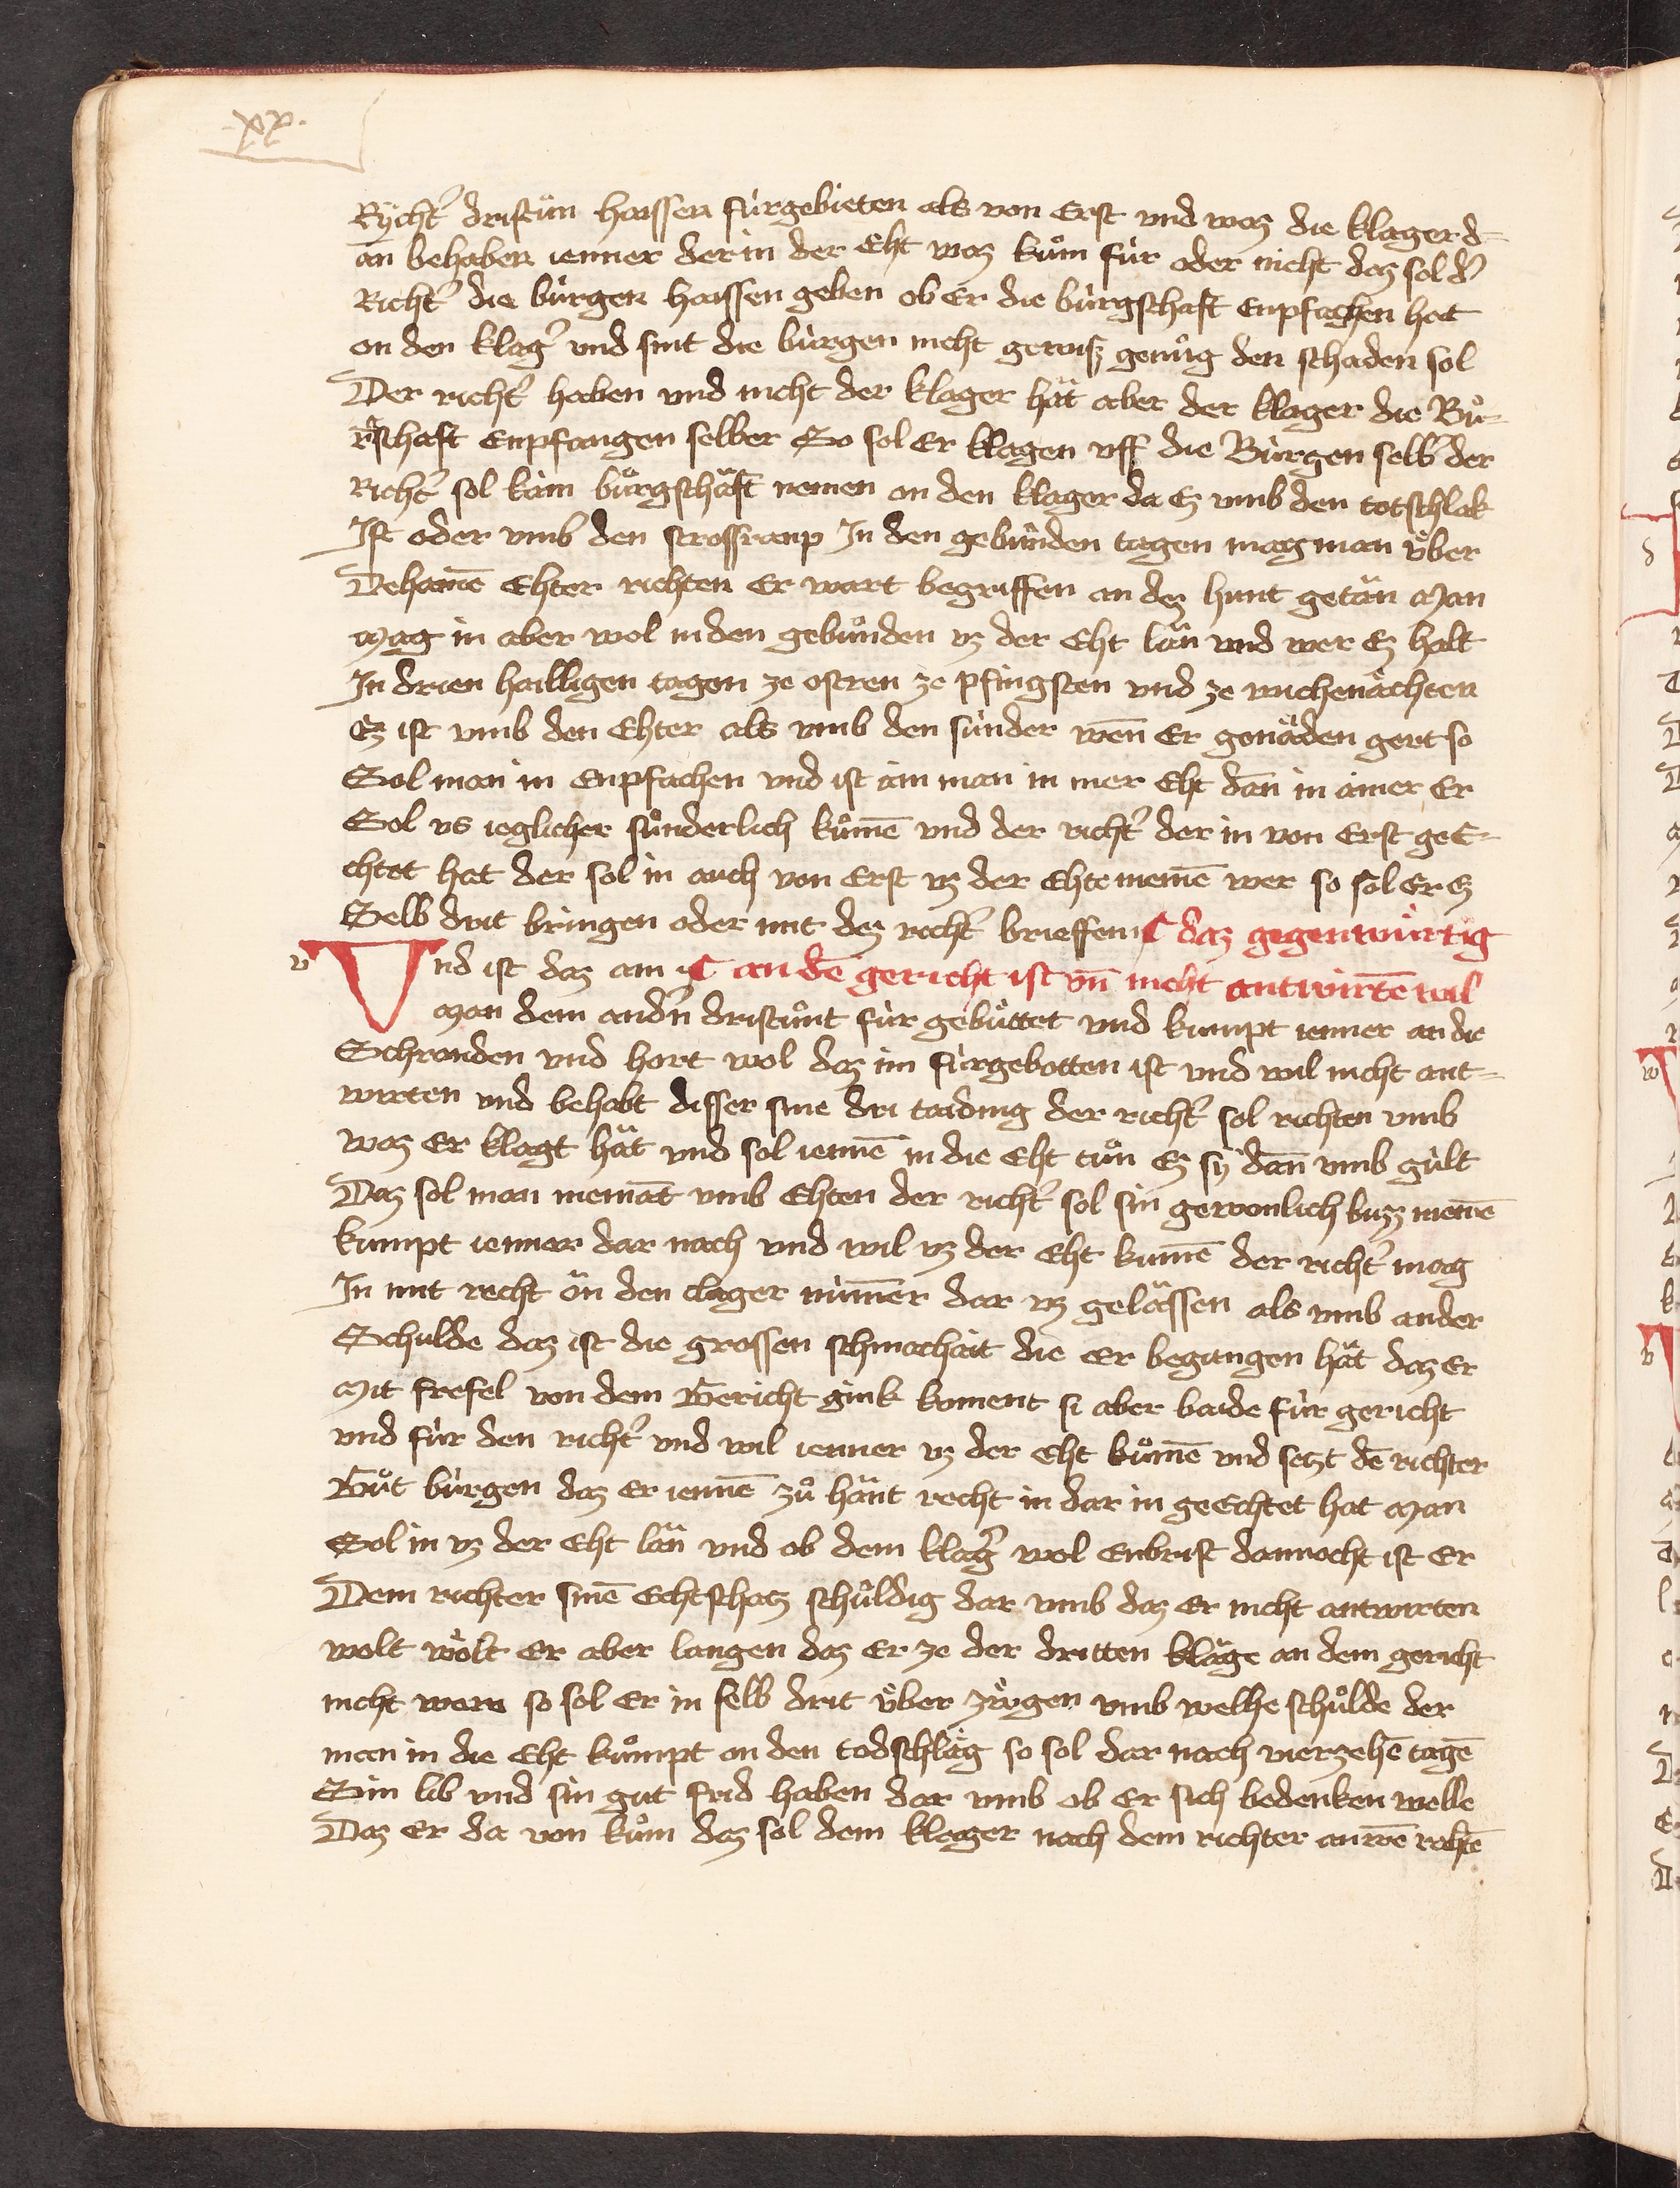 .xx.
Rÿcht᷑ dristuͦn haissen fúrgebieten als von Erst vnd waz die klager d-
an̄ behaben ienner der in der Eht waz kuͦm fúr oder nicht daz sol d᷑
Richt᷑ die búrgen haissen geben ob Er die búrgschaft Enpfachen hat
on den klag᷑ vnd sint die búrgen nicht gewisz genuͦg den schaden sol
Der richt᷑ haben vnd nicht der klager hät aber der klager die Buͤ-
rgschaft Enpfangen selber So sol Er klagen vff die Búrgen selb der
richt᷑ sol kain buͤrgschäft nemen on den klager da Ez vmb den totschlak
Ist oder vmb den strossraup In den gebunden tagen mag man v̈ber
Dehainē Ehter richten Er wart begriffen an dez hunt getän Man
Mag in aber wol in den gebuͦnden vz der Eht län vnd wer Ez halt
In drien hailligen tagen ze ostren ze pfingsten vnd ze wichenächten
Ez ist vmb den Ehter als vmb den súnder wen̄ Er genäden gert so
Sol man in Enpfachen vnd ist ain man in mer Eht dan̄ in ainer Er
Sol vs ieglicher suͦnderlich kuͦmē vnd der richt᷑ der in von Erst geE-
chtet hat der sol in auch von Erst vz der Ehte nemē wer so sol Er Ez
Selb drit bringen oder mit dez richt᷑ brieffenn ¶ daz gegenwúrtig
v Vnd ist daz am ¶ an dē gericht ist vn̄ nicht antwirtē wil
Man dem andn᷑ dristuͦnt fúr gebúttet vnd kumpt ienner an die
Schranden vnd hort wol daz im fúrgebotten ist vnd wil nicht ant-
wirten vnd behabt disser sine dri taiding der richt᷑ sol richten vmb
waz Er klagt hät vnd sol iennē in die Eht tuͦn Ez sÿ dan̄ vmb gúlt
Daz sol man niemāt vmb Ehten der richt᷑ sol sin gewonlich buzz nemē
kumpt ienner dar nach vnd wil vz der Eht kumē der richt᷑ mag
In mit recht än den clager nimēr dar vz gelässen als vmb ander
Schulde daz ist die grossen schmachait die er begangen hät daz Er
Mit frefel von dem Gericht gink koment si aber baide fúr gericht
vnd fúr den richt᷑ vnd wil ienner vz der Eht kuͦmē vnd setzt dē richter
Guͦt búrgen daz Er iennē zuͦ hänt recht in dar in geEchtet hat Man
Sol in vz der Eht län vnd ob dem klag᷑ wol Enbrist dannocht ist Er
Dem richter sinē Echtschatz schuͦldig dar vmb daz Er nicht antwirten
wolt wölt Er aber laugen daz Er ze der dritten kläge an dem gericht
nicht were so sol Er in selb drit v̈ber zúgen vmb welhe schuͦlde der
man in die Eht kuͦmpt on den todschläg so sol dar nach vierzehē tagē
Sin lib vnd sin gut frid haben dar vmb ob Er sich bedenken welle
Daz Er da von kuͦm daz sol dem klager nach dem richter an